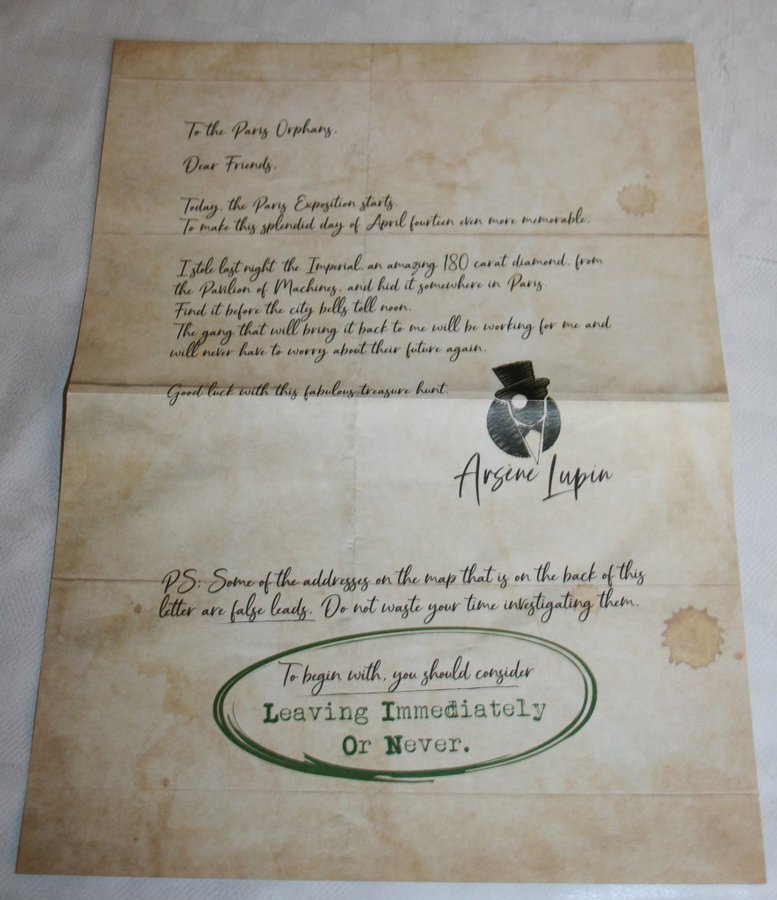 To the Paris Orphans,
Dear Friends,
Today, the Paris Exposition starts.
To make this splendid day of April fourteen even more memorable,
I stole last night the Imperial, an amazing 180 carat diamond, from
the Pavilion of Machines, and hid it somewhere in Paris.
Find it before the city bells toll noon.
The gang that will bring it back to me will be working for me and
will never have to worry about their future again.
Good luck with this fabulous treasure hunt.
Arsène Lupin
PS: Some of the addresses on the map that is on the back of this
letter are false leads. Do not waste your time investigating them.
To begin with, you should consider
Leaving Immediately
Or Never.